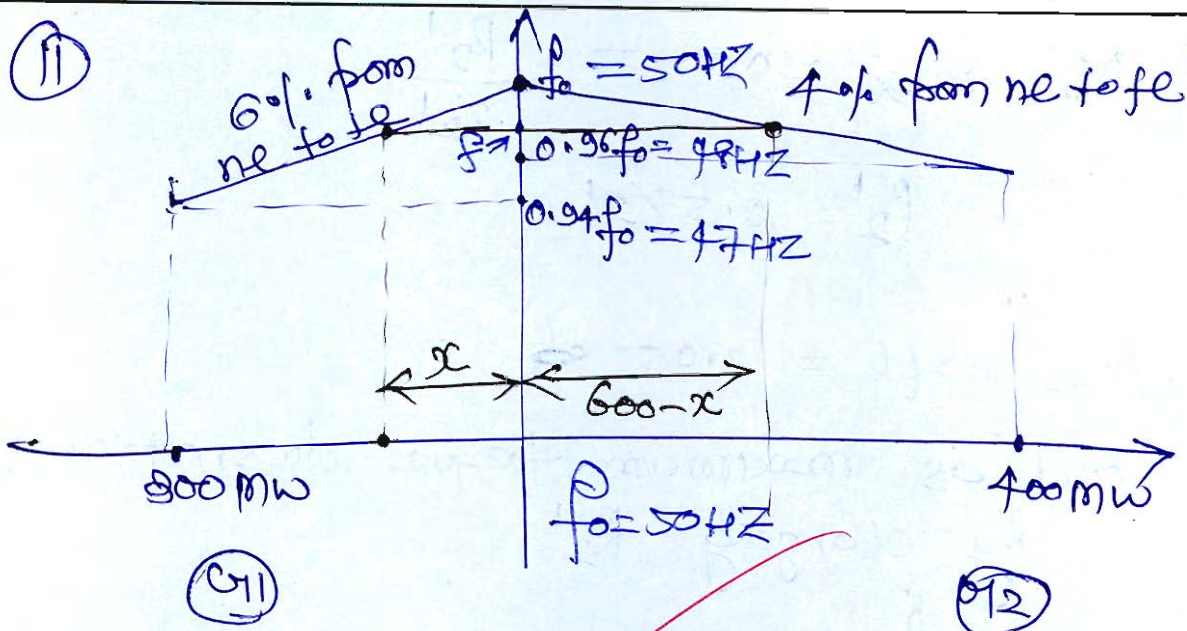 11
6% from nl to fl
f₀ = 50HZ
4% from nl to fl
f→
0.96f₀ = 48HZ
0.94f₀ = 47HZ
x
600-x
300MW
f₀=50HZ
400MW
G1
G2